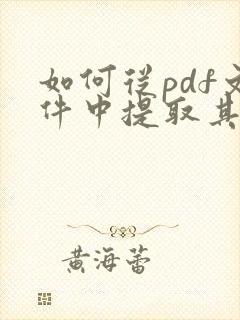 如何从pdf文
件中提取其
黄海蕾